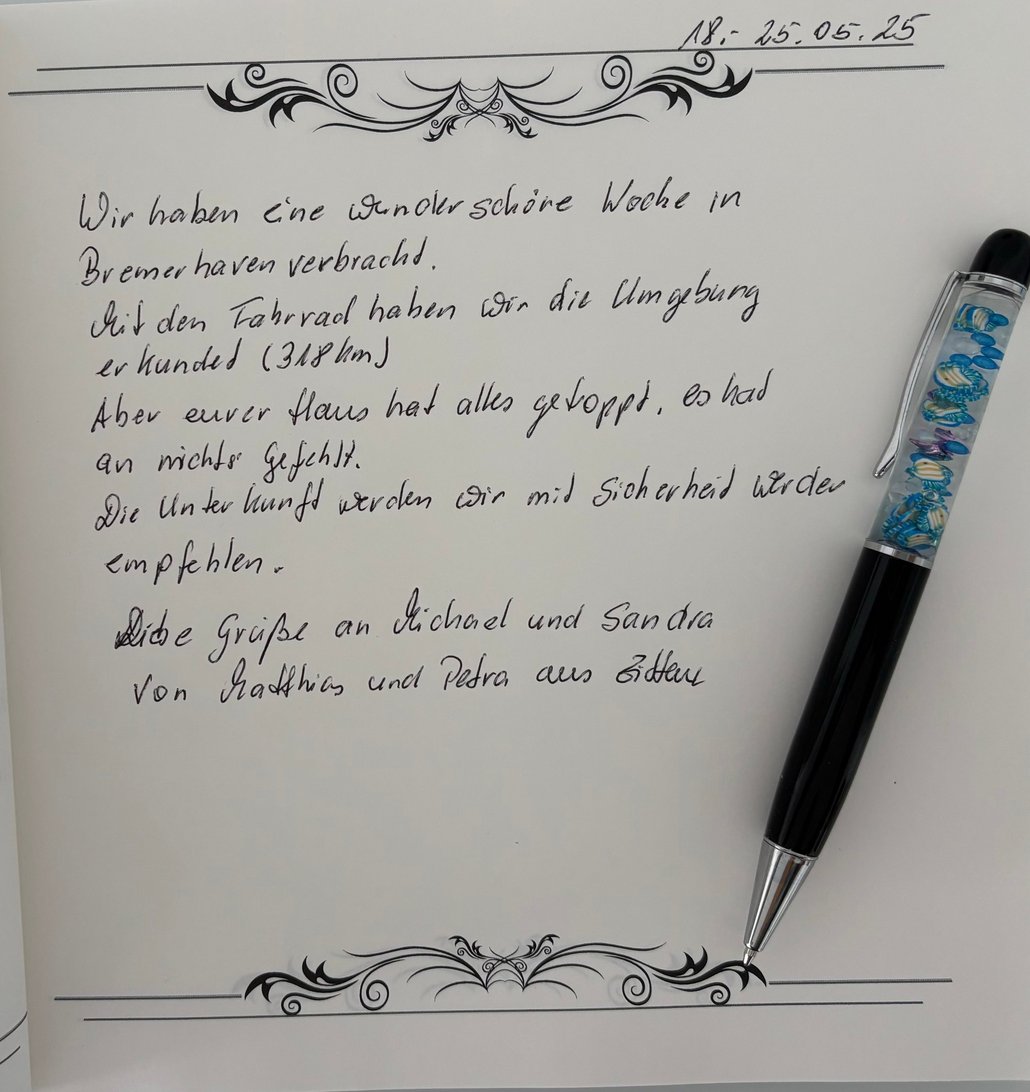 18.- 25.05.25
Wir haben eine wunderschöne Woche in
Bremerhaven verbracht.
Mit den Fahrrad haben wir die Umgebung
erkundet (318 km)
Aber eurer Haus hat alles getoppt, es hat
an nichts gefehlt.
Die Unterkunft werden wir mit Sicherheit weiter
empfehlen.
Liebe Grüße an Michael und Sandra
von Matthias und Petra aus Zittau